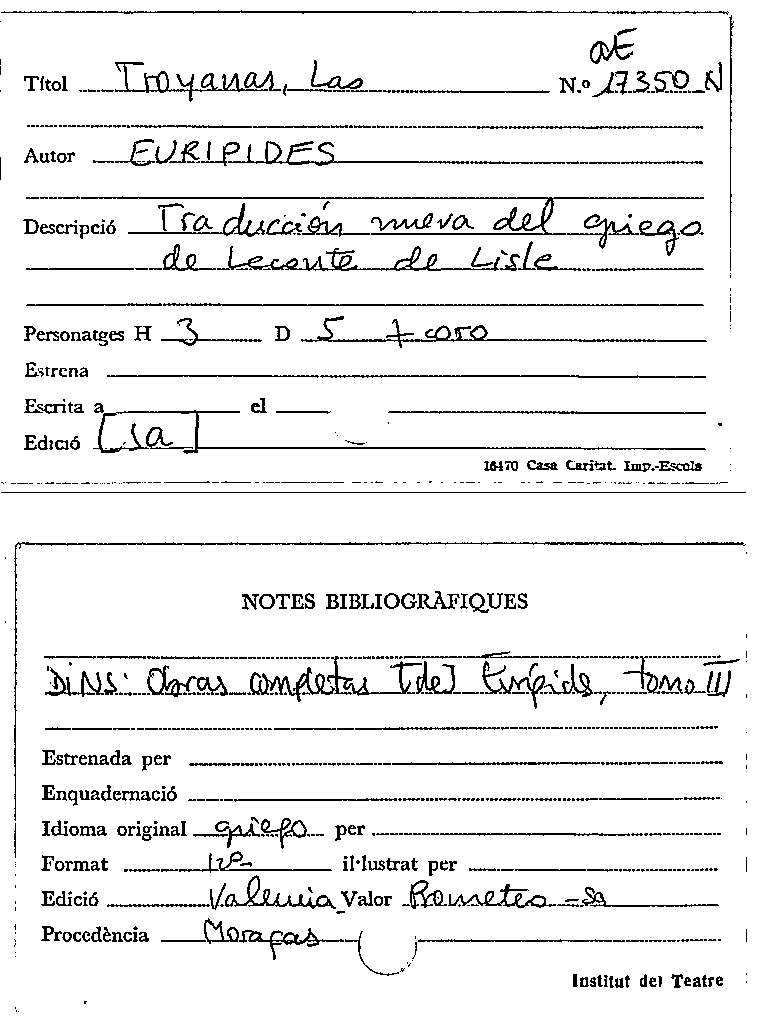 aE
Títol Troyanas, Las N.º 17350 N
Autor EURIPIDES
Descripció Traducción nueva del griego
de Leconte de Lisle
Personatges H 3 D 5 + coro
Estrena
Escrita a el
Edició [sa]
16470 Casa Caritat. Imp.-Escola
NOTES BIBLIOGRÀFIQUES
DINS: Obras completas [de] Eurípide, tomo III
Estrenada per
Enquadernació
Idioma original griego per
Format
il·lustrat per
Edició Valencia Valor Prometeo - sa
Procedència Moragas
Institut del Teatre